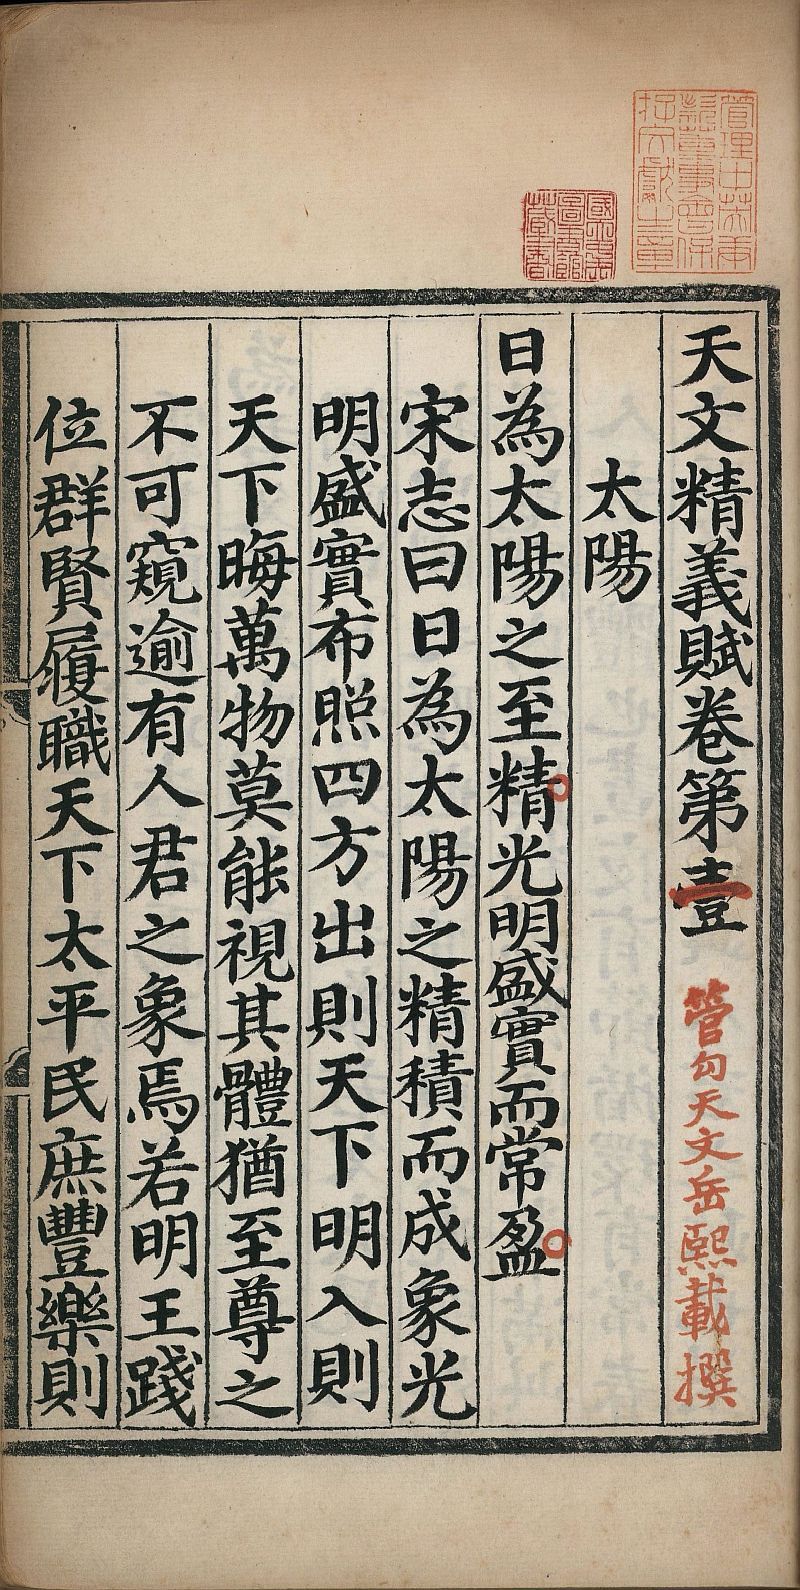 天文精義賦卷第壹
管勾天文岳熙載撰
太陽
日為太陽之至精光明盛實而常盈
宋志曰日為太陽之精積而成象光
明盛實布照四方出則天下明入則
天下晦萬物莫能視其體猶至尊之
不可窺逾有人君之象焉若明王踐
位群賢履職天下太平民庶豐樂則
管理中英庚
款董事會保
存文獻之章
國立中央
圖書館
藏書